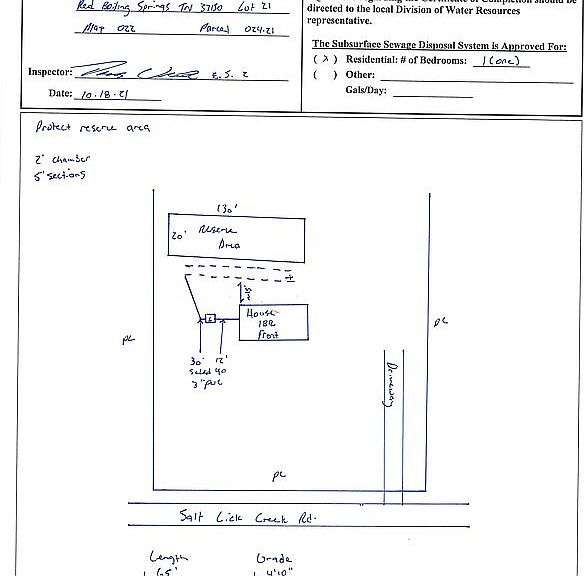 Red Boiling Springs TN 37150 Lot 21
Map 022 Parcel 024.21
Inspector: E.S. 2
Date: 10.18.21
directed to the local Division of Water Resources
representative.
The Subsurface Sewage Disposal System is Approved For:
( X ) Residential: # of Bedrooms: 1 (one)
( ) Other:
Gals/Day:
Protect reserve area
2' chamber
5' sections
130'
20' Reserve
Area
House
1BR
Front
PL
PL
30' 12'
Solid 40
3" PVC
Driveway
PL
Salt Lick Creek Rd.
Length Grade
1 65' 1 4'10"